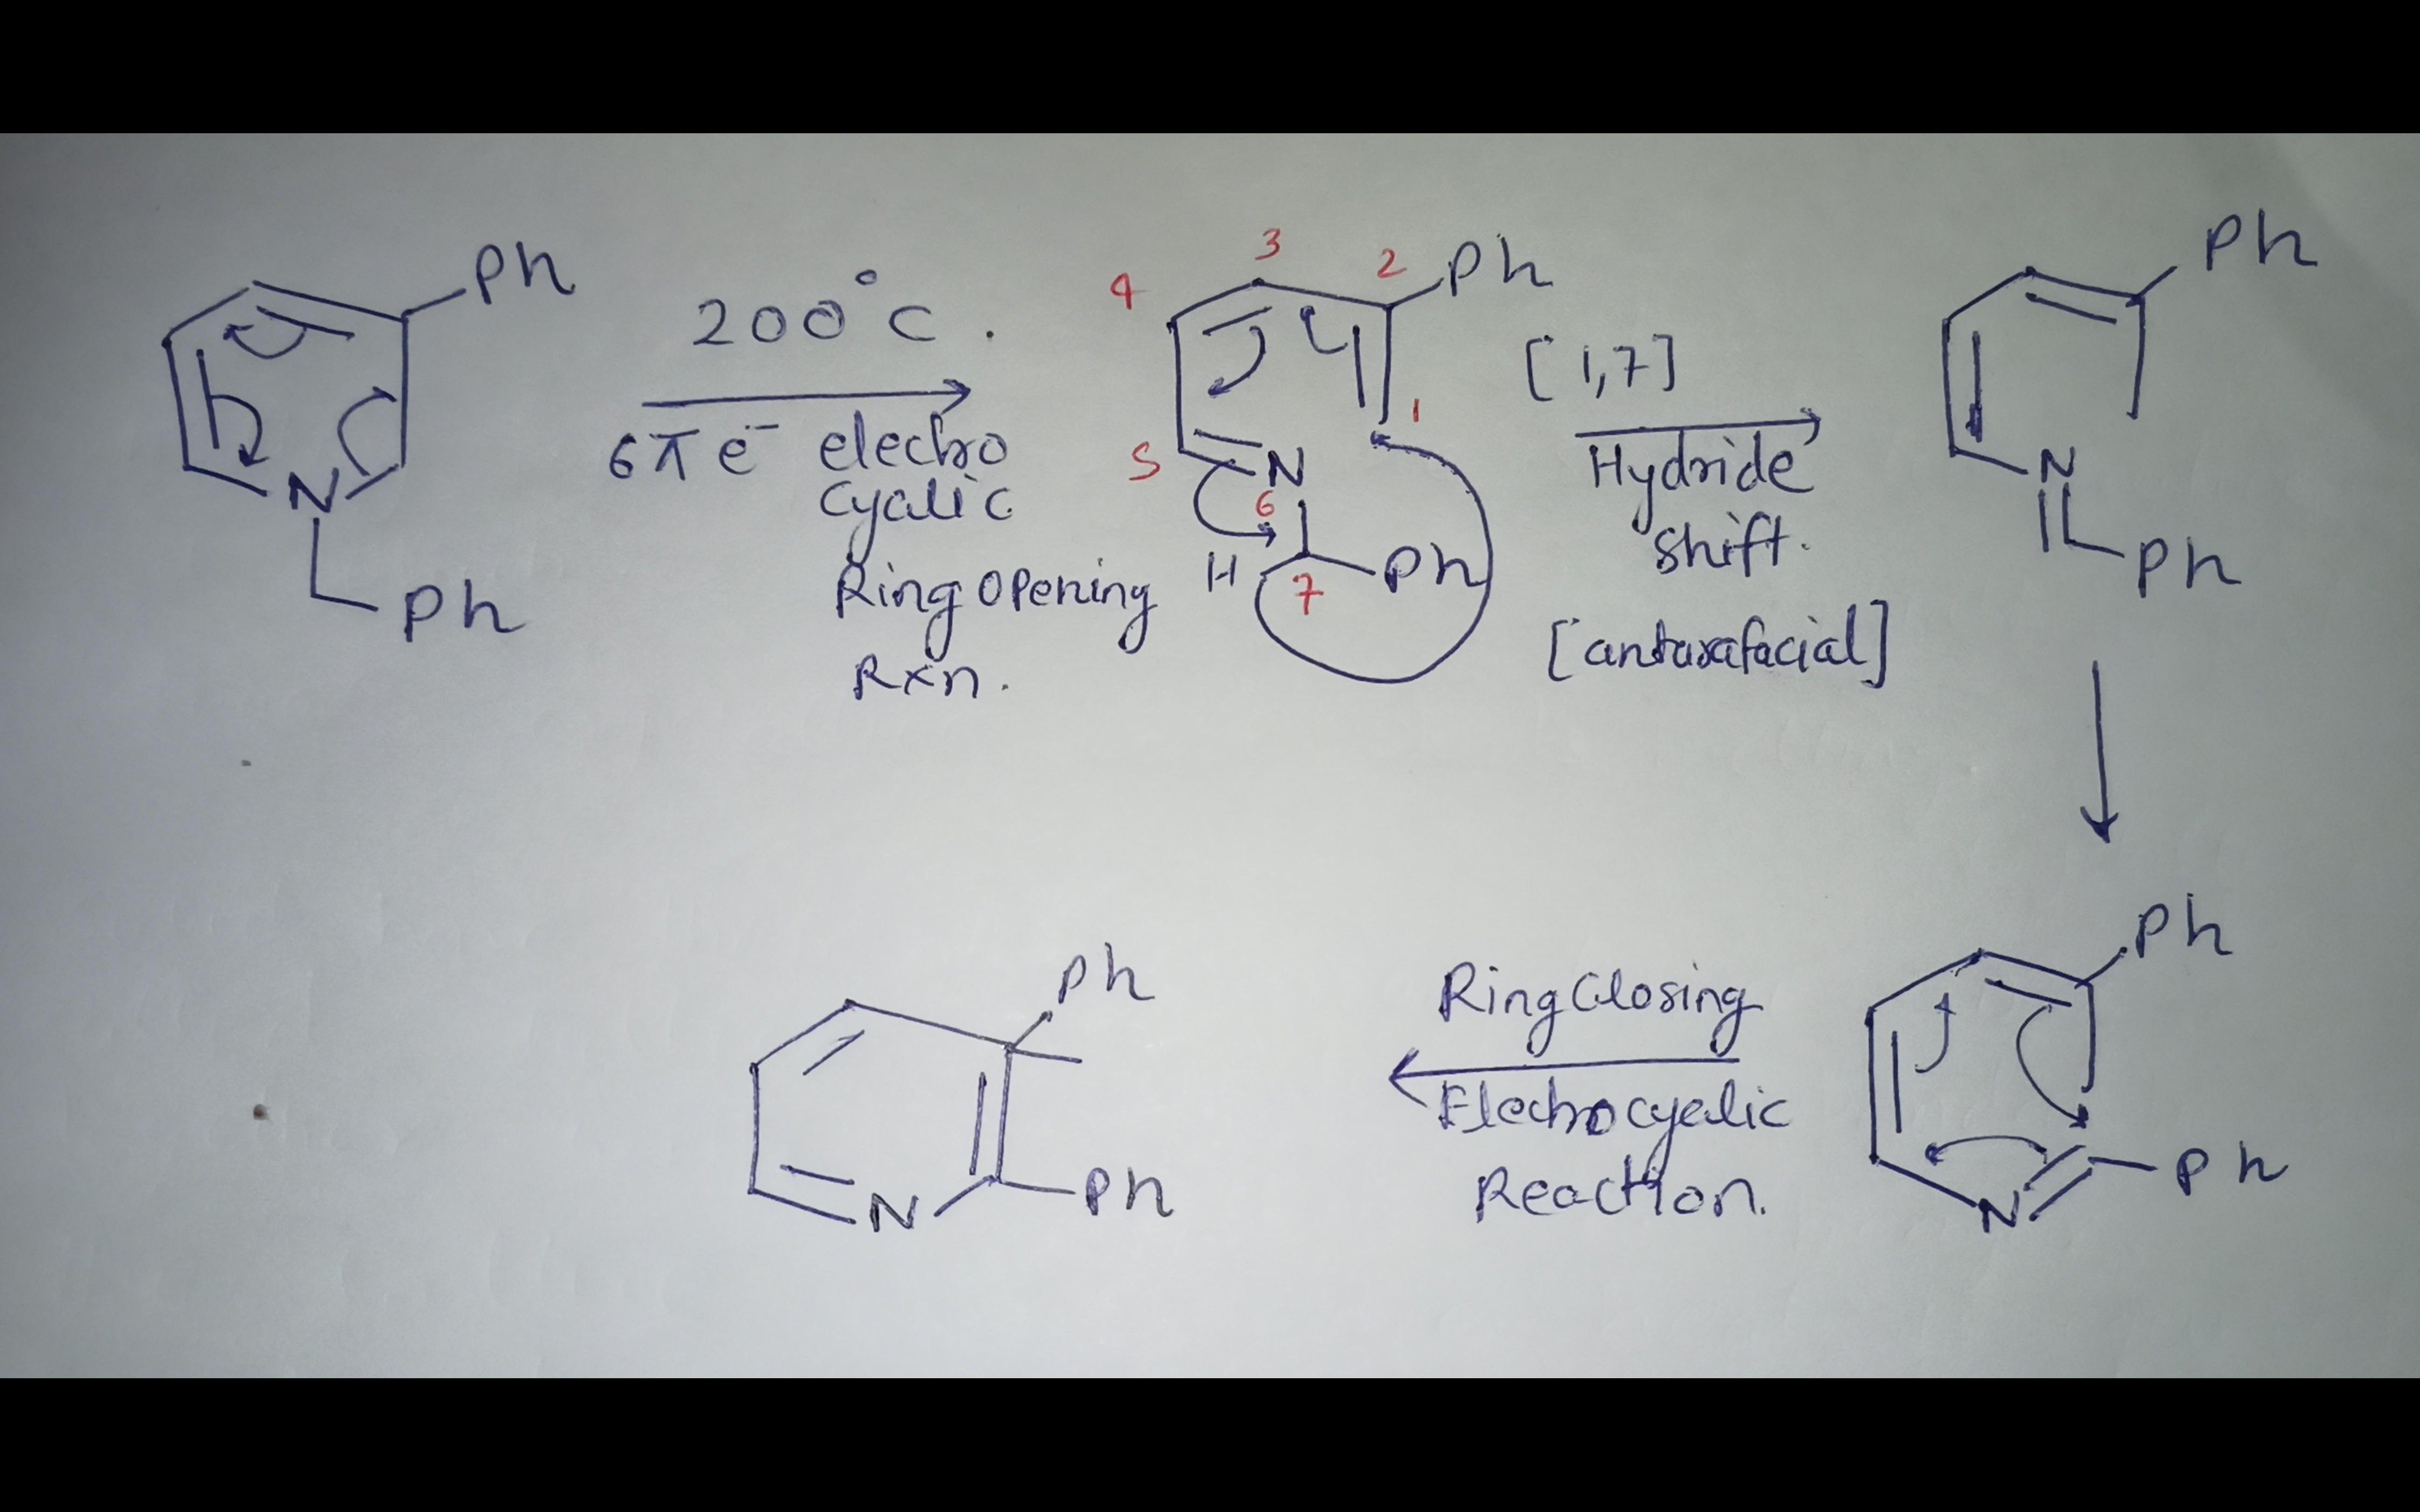 Ph
N
Ph
200°C.
6πe⁻ electro
cyclic
Ring Opening
Rxn.
4
3
2
Ph
1
5
N
6
H
7
Ph
[1,7]
Hydride
Shift.
[antarafacial]
Ph
N
Ph
Ph
N
Ph
Ring Closing
Electrocyclic
Reaction.
Ph
N
Ph